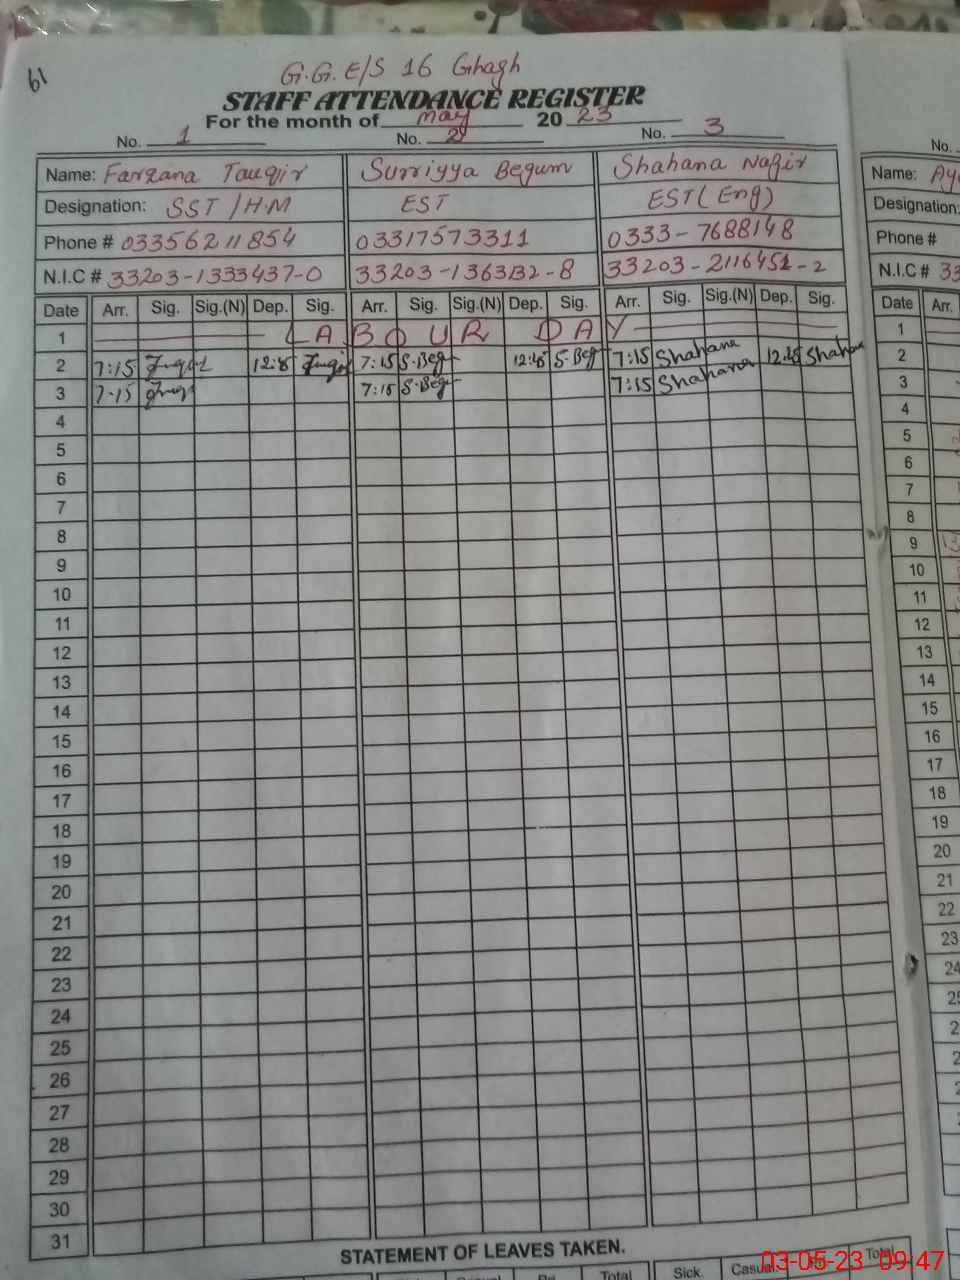 61
G.G.E/S 16 Ghagh
STAFF ATTENDANCE REGISTER
For the month of May 2023
No. 1 No. 2 No. 3 No.
Name: Farzana Tauqir Surriyya Begum Shahana Nazir Name:
Designation: SST/HM EST EST (Eng) Designation:
Phone # 03356211854 03317573311 0333-7688148 Phone #
N.I.C # 33203-1333437-0 33203-1363132-8 33203-2116451-2 N.I.C # 33
Date Arr. Sig. Sig.(N) Dep. Sig. Arr. Sig. Sig.(N) Dep. Sig. Arr. Sig. Sig.(N) Dep. Sig. Date Arr.
1 LABOUR DAY 1
2 7:15 12:45 7:15 S.Beg 12:45 S.Beg 7:15 Shahana 12:45 Shahana 2
3 7:15 7:15 S.Beg 7:15 Shahana 3
4 4
5 5
6 6
7 7
8 8
9 9
10 10
11 11
12 12
13 13
14 14
15 15
16 16
17 17
18 18
19 19
20 20
21 21
22 22
23 23
24 24
25
26
27
28
29
30
31
STATEMENT OF LEAVES TAKEN.
Total Sick. Casual Total
03-05-23 09:47